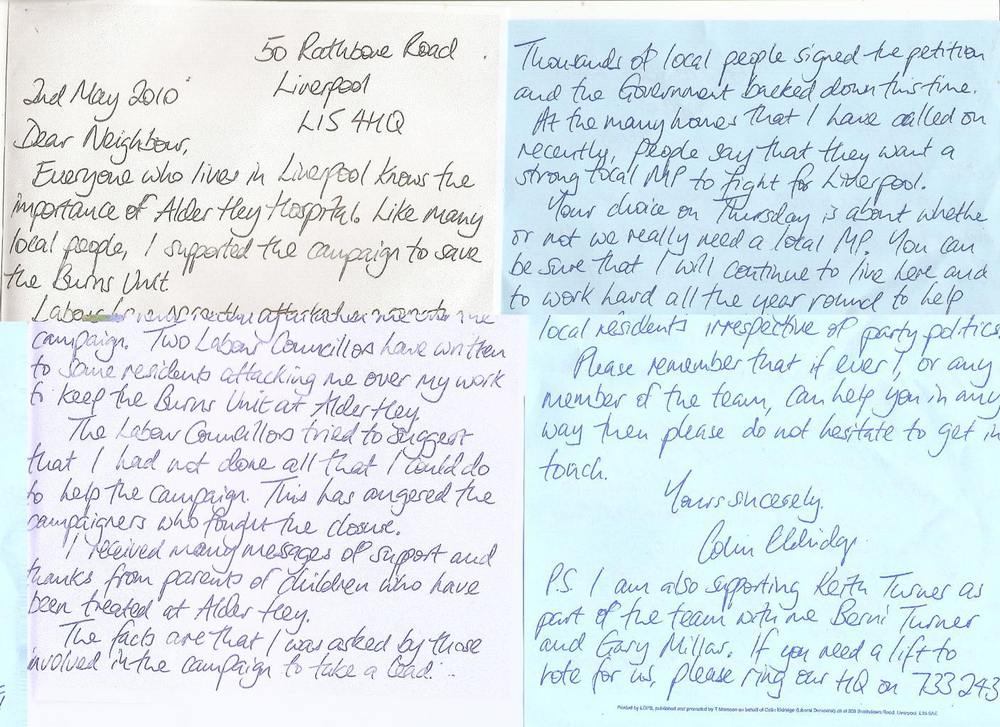 50 Rathbone Road
Liverpool
L15 4HQ
2nd May 2010
Dear Neighbour,
Everyone who lives in Liverpool knows the
importance of Alder Hey Hospital. Like many
local people, I supported the campaign to save
the Burns Unit
Labour
campaign. Two Labour Councillors have written
to some residents attacking me over my work
to keep the Burns Unit at Alder Hey.
The Labour Councillors tried to suggest
that I had not done all that I could do
to help the campaign. This has angered the
campaigners who fought the closure.
I received many messages of support and
thanks from parents of children who have
been treated at Alder Hey.
The facts are that I was asked by those
involved in the campaign to take a lead...
Thousands of local people signed the petition
and the Government backed down this time.
At the many homes that I have called on
recently, people say that they want a
strong local MP to fight for Liverpool.
Your choice on Thursday is about whethe
or not we really need a local MP. You can
be sure that I will continue to live here and
to work hard all the year round to help
local residents irrespective of party politics.
Please remember that if ever I, or any
member of the team, can help you in any
way then please do not hesitate to get in
touch.
Yours sincerely,
Colin Eldridge
P.S. I am also supporting Keith Turner as
part of the team with me Berni Turner
and Gary Millar. If you need a lift to
vote for us, please ring our HQ on 733 243
Printed by LDPS, published and promoted by T Morrison on behalf of Colin Eldridge (Liberal Democrat) all at